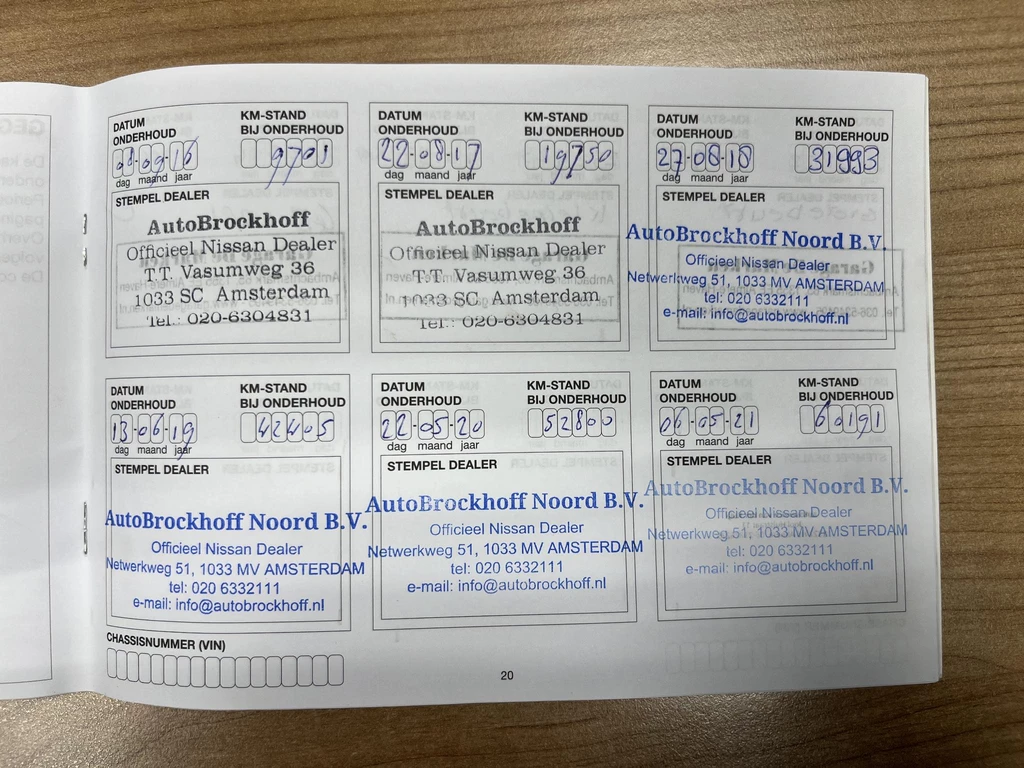 DATUM
ONDERHOUD
08-09-16
dag maand jaar
KM-STAND
BIJ ONDERHOUD
9701
STEMPEL DEALER
AutoBrockhoff
Officieel Nissan Dealer
T.T. Vasumweg 36
1033 SC Amsterdam
Tel.: 020-6304831
DATUM
ONDERHOUD
22-08-17
dag maand jaar
KM-STAND
BIJ ONDERHOUD
19750
STEMPEL DEALER
AutoBrockhoff
Officieel Nissan Dealer
T.T. Vasumweg 36
1033 SC Amsterdam
Tel.: 020-6304831
DATUM
ONDERHOUD
27-08-18
dag maand jaar
KM-STAND
BIJ ONDERHOUD
31993
STEMPEL DEALER
AutoBrockhoff Noord B.V.
Officieel Nissan Dealer
Netwerkweg 51, 1033 MV AMSTERDAM
tel: 020 6332111
e-mail: info@autobrockhoff.nl
DATUM
ONDERHOUD
13-06-19
dag maand jaar
KM-STAND
BIJ ONDERHOUD
42405
STEMPEL DEALER
AutoBrockhoff Noord B.V.
Officieel Nissan Dealer
Netwerkweg 51, 1033 MV AMSTERDAM
tel: 020 6332111
e-mail: info@autobrockhoff.nl
DATUM
ONDERHOUD
22-05-20
dag maand jaar
KM-STAND
BIJ ONDERHOUD
52800
STEMPEL DEALER
AutoBrockhoff Noord B.V.
Officieel Nissan Dealer
Netwerkweg 51, 1033 MV AMSTERDAM
tel: 020 6332111
e-mail: info@autobrockhoff.nl
DATUM
ONDERHOUD
06-05-21
dag maand jaar
KM-STAND
BIJ ONDERHOUD
60191
STEMPEL DEALER
AutoBrockhoff Noord B.V.
Officieel Nissan Dealer
Netwerkweg 51, 1033 MV AMSTERDAM
tel: 020 6332111
e-mail: info@autobrockhoff.nl
CHASSISNUMMER (VIN)
20